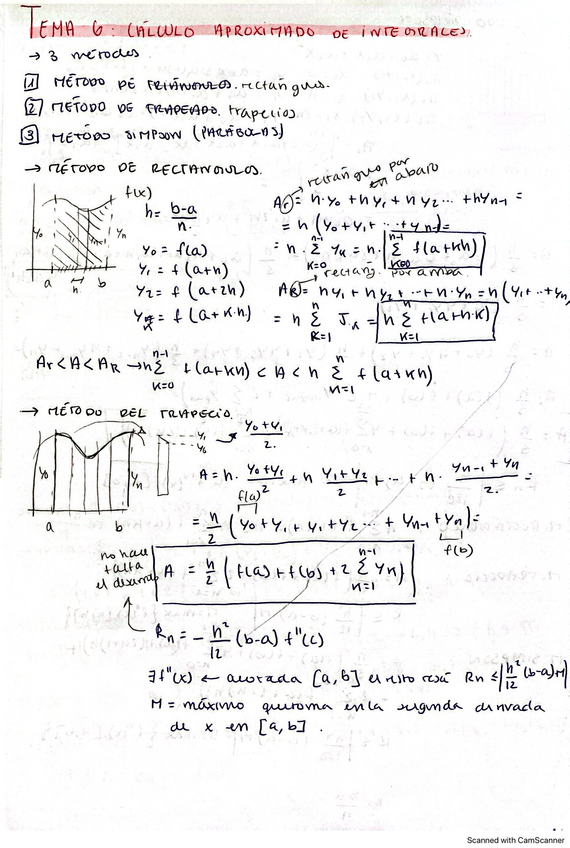 TEMA 6: CÁLCULO APROXIMADO DE INTEGRALES.
→ 3 métodos.
1 MÉTODO DE TRIÁNGULOS. rectángulos.
2 MÉTODO DE TRAPEADO. trapecios.
3 MÉTODO SIMPSON (PARÁBOLAS)
→ MÉTODO DE RECTÁNGULOS.
f(x)
y0 y1 yn-1 yn
a h b
h = b-a / n.
y0 = f(a)
y1 = f(a+h)
y2 = f(a+2h)
yk = f(a+k·h)
rectángulos por en abajo
Ar = h·y0 + h y1 + h y2 ... + hyn-1 =
= h (y0+y1+ ... + yn-1) =
= h · n-1 ∑ k=0 yk = h · n-1 ∑ k=0 f(a+kh)
rectáng. por arriba
AR = h y1 + h y2 + ... + h·yn = h (y1 + ... + yn)
= h n ∑ k=1 yk = h n ∑ k=1 f(a+h·k)
Ar < A < AR → h n-1 ∑ k=0 f(a+kh) < A < h n ∑ k=1 f(a+kh)
→ MÉTODO DEL TRAPECIO.
y0 yn
a b
y1
y0
y0+y1 / 2.
A = h · y0+y1 / 2 + h y1+y2 / 2 + ... + h · yn-1 + yn / 2. =
f(a)
= h/2 (y0+y1 + y1+y2 ... + yn-1 + yn) =
f(b)
no hace falta
A = h/2 (f(a)+f(b) + 2 n-1 ∑ n=1 yn)
Rn = - h²/12 (b-a) f''(c)
∃f''(x) ← acotada [a,b] el resto será Rn ≤ |h²/12 (b-a) M|
M = máximo que toma en la segunda derivada
de x en [a,b].
Scanned with CamScanner